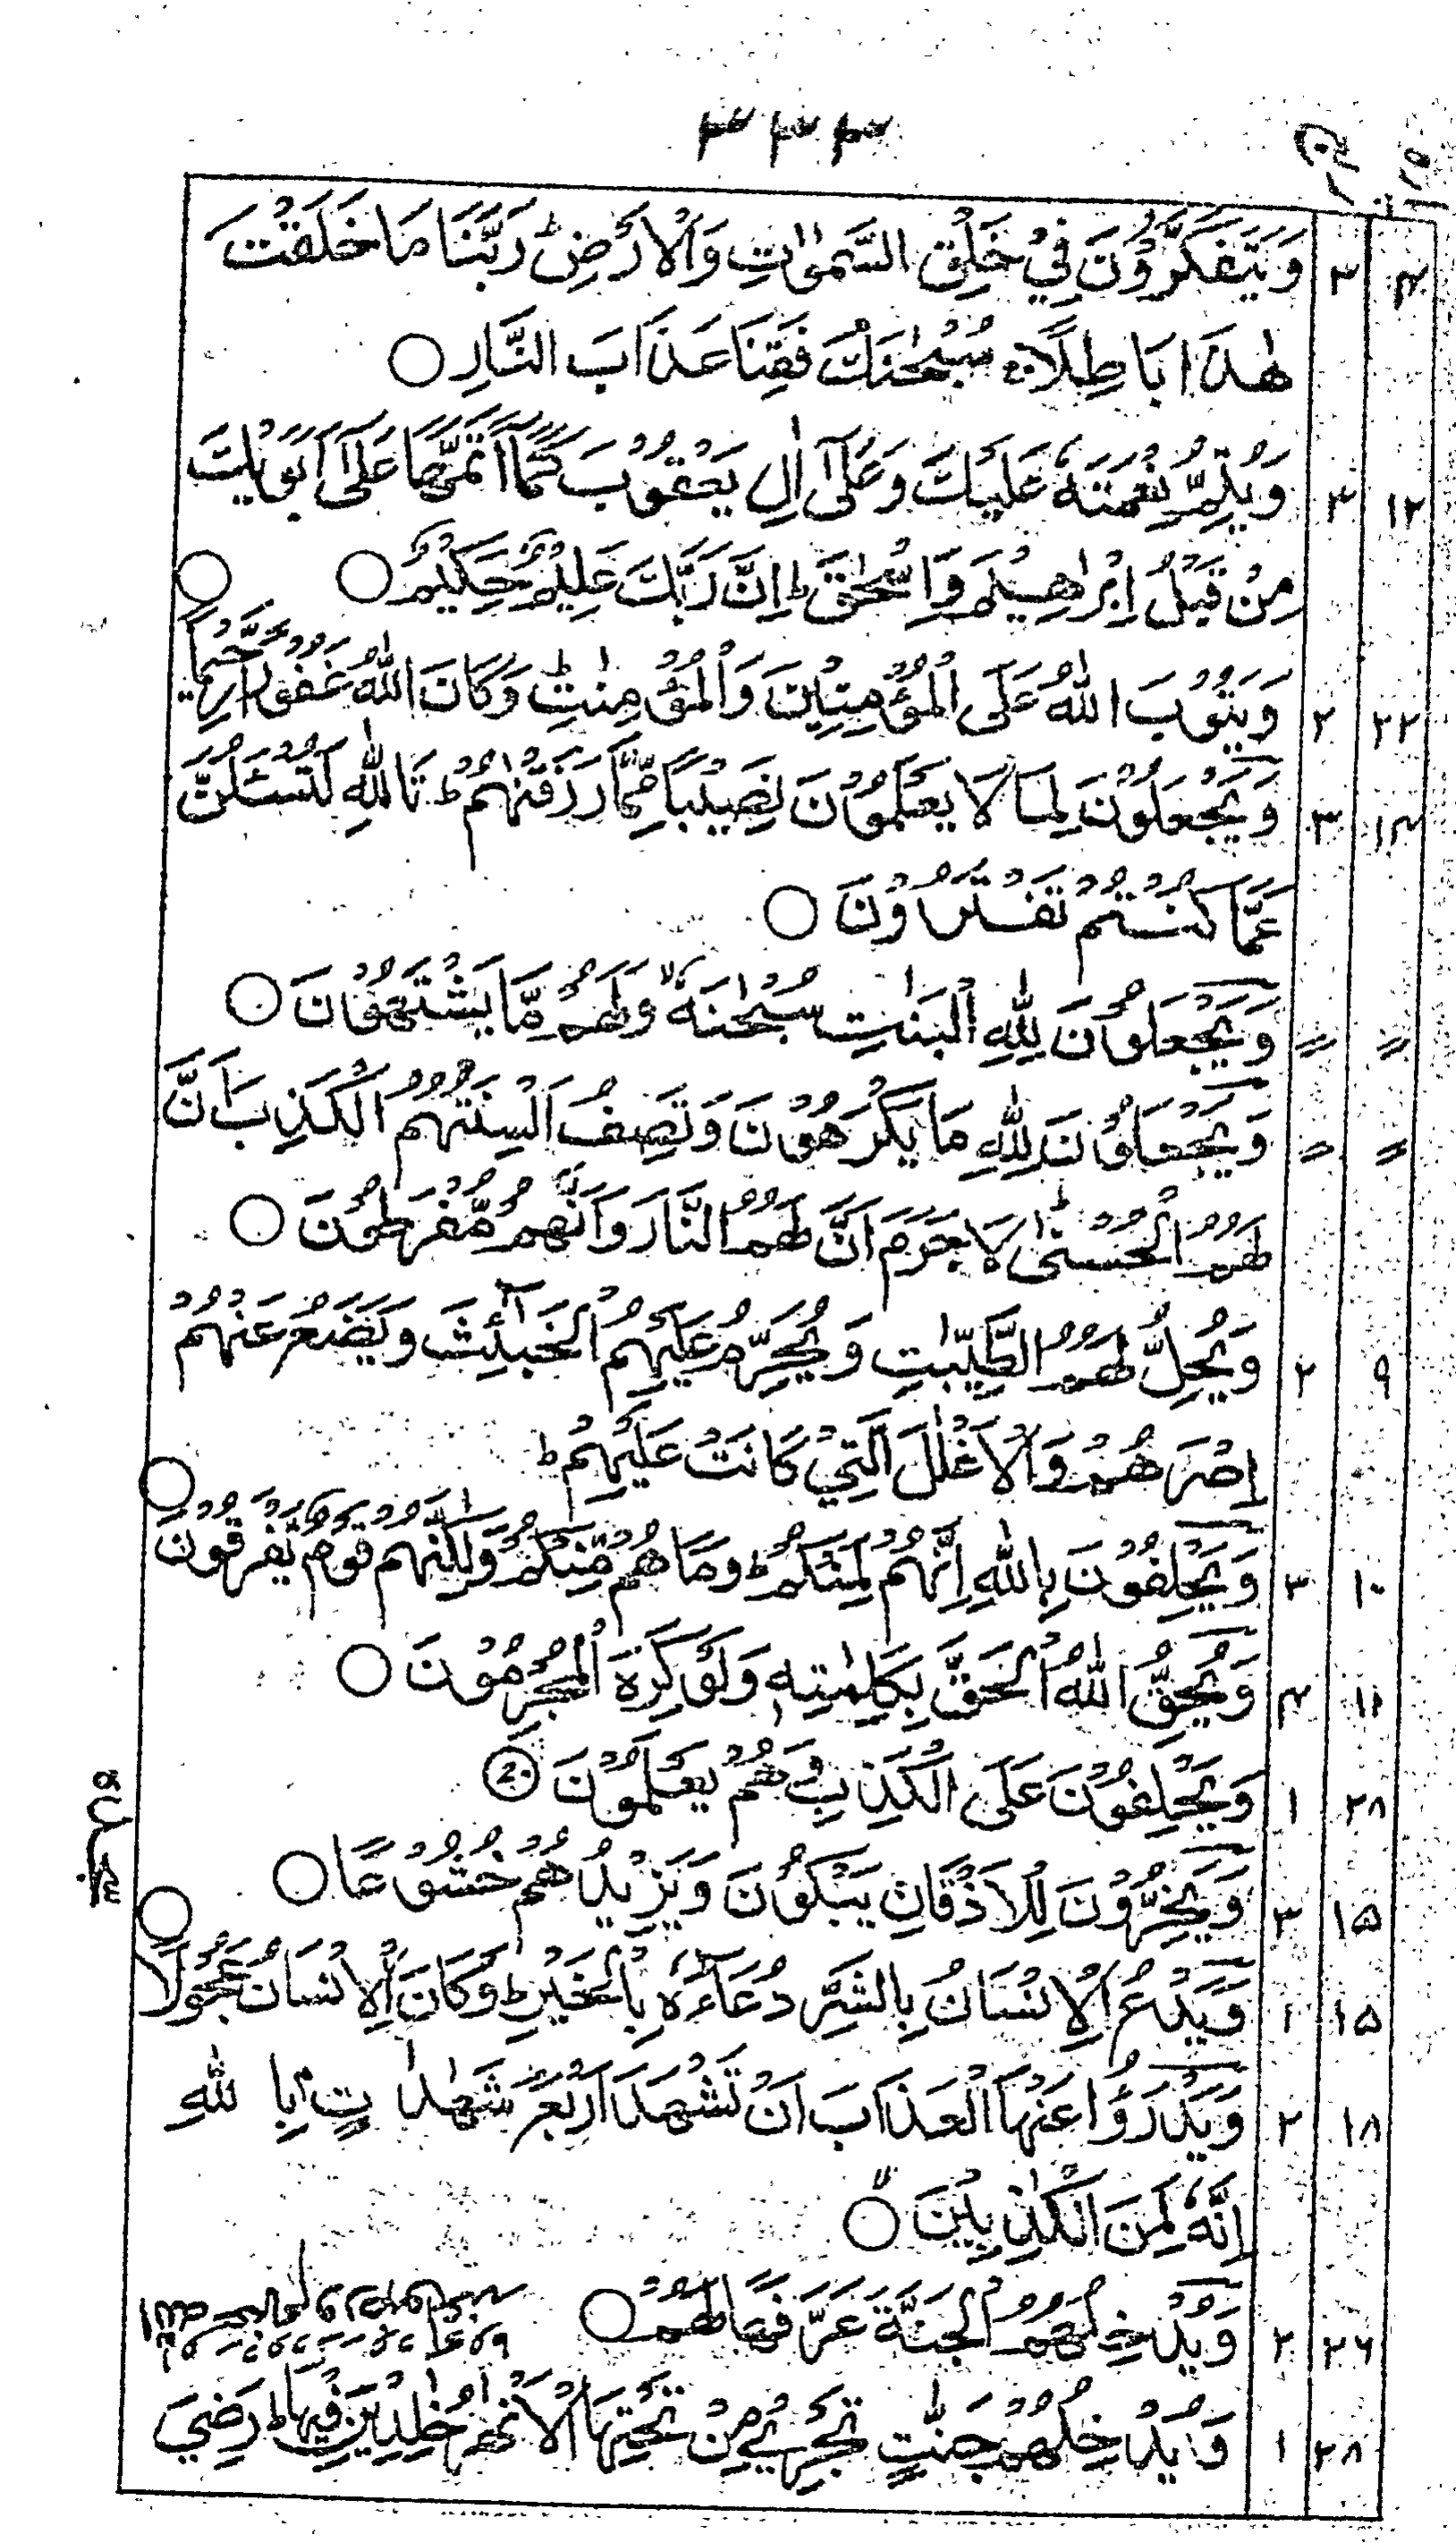 ۳۳۳
۴ ۳ وَيَتَفَكَّرُوْنَ فِيْ خَلْقِ السَّمٰوٰتِ وَالْاَرْضِ ط رَبَّنَا مَا خَلَقْتَ
هٰذَا بَاطِلًا ج سُبْحٰنَكَ فَقِنَا عَذَابَ النَّارِ ○
۱۲ ۳ وَيُتِمُّ نِعْمَتَهٗ عَلَيْكَ وَعَلٰٓى اٰلِ يَعْقُوْبَ كَمَآ اَتَمَّهَا عَلٰٓى اَبَوَيْكَ
مِنْ قَبْلُ اِبْرٰهِيْمَ وَاِسْحٰقَ ط اِنَّ رَبَّكَ عَلِيْمٌ حَكِيْمٌ ○
۲۲ ۲ وَيَتُوْبَ اللّٰهُ عَلَى الْمُؤْمِنِيْنَ وَالْمُؤْمِنٰتِ ط وَكَانَ اللّٰهُ غَفُوْرًا رَّحِيْمًا ○
۱۴ ۳ وَيَجْعَلُوْنَ لِمَا لَا يَعْلَمُوْنَ نَصِيْبًا مِّمَّا رَزَقْنٰهُمْ ط تَاللّٰهِ لَتُسْـَٔلُنَّ
عَمَّا كُنْتُمْ تَفْتَرُوْنَ ○
〃 〃 وَيَجْعَلُوْنَ لِلّٰهِ الْبَنٰتِ سُبْحٰنَهٗ لا وَلَهُمْ مَّا يَشْتَهُوْنَ ○
〃 〃 وَيَجْعَلُوْنَ لِلّٰهِ مَا يَكْرَهُوْنَ وَتَصِفُ اَلْسِنَتُهُمُ الْكَذِبَ اَنَّ
لَهُمُ الْحُسْنٰى ط لَا جَرَمَ اَنَّ لَهُمُ النَّارَ وَاَنَّهُمْ مُّفْرَطُوْنَ ○
۹ ۲ وَيُحِلُّ لَهُمُ الطَّيِّبٰتِ وَيُحَرِّمُ عَلَيْهِمُ الْخَبٰٓئِثَ وَيَضَعُ عَنْهُمْ
اِصْرَهُمْ وَالْاَغْلٰلَ الَّتِيْ كَانَتْ عَلَيْهِمْ ط
۱۰ ۳ وَيَحْلِفُوْنَ بِاللّٰهِ اِنَّهُمْ لَمِنْكُمْ ط وَمَا هُمْ مِّنْكُمْ وَلٰكِنَّهُمْ قَوْمٌ يَّفْرَقُوْنَ ○
۱۱ ۴ وَيُحِقُّ اللّٰهُ الْحَقَّ بِكَلِمٰتِهٖ وَلَوْ كَرِهَ الْمُجْرِمُوْنَ ○
۲۸ ۱ وَيَحْلِفُوْنَ عَلَى الْكَذِبِ وَهُمْ يَعْلَمُوْنَ
۱۵ ۳ وَيَخِرُّوْنَ لِلْاَذْقَانِ يَبْكُوْنَ وَيَزِيْدُهُمْ خُشُوْعًا ○
۱۵ ۱ وَيَدْعُ الْاِنْسَانُ بِالشَّرِّ دُعَآءَهٗ بِالْخَيْرِ ط وَكَانَ الْاِنْسَانُ عَجُوْلًا ○
۱۸ ۲ وَيَدْرَؤُا عَنْهَا الْعَذَابَ اَنْ تَشْهَدَ اَرْبَعَ شَهٰدٰتٍ بِاللّٰهِ
اِنَّهٗ لَمِنَ الْكٰذِبِيْنَ لا ○
۲۶ ۲ وَيُدْخِلُهُمُ الْجَنَّةَ عَرَّفَهَا لَهُمْ ○
۲۸ ۱ وَيُدْخِلُهُمْ جَنّٰتٍ تَجْرِيْ مِنْ تَحْتِهَا الْاَنْهٰرُ خٰلِدِيْنَ فِيْهَا ط رَضِيَ